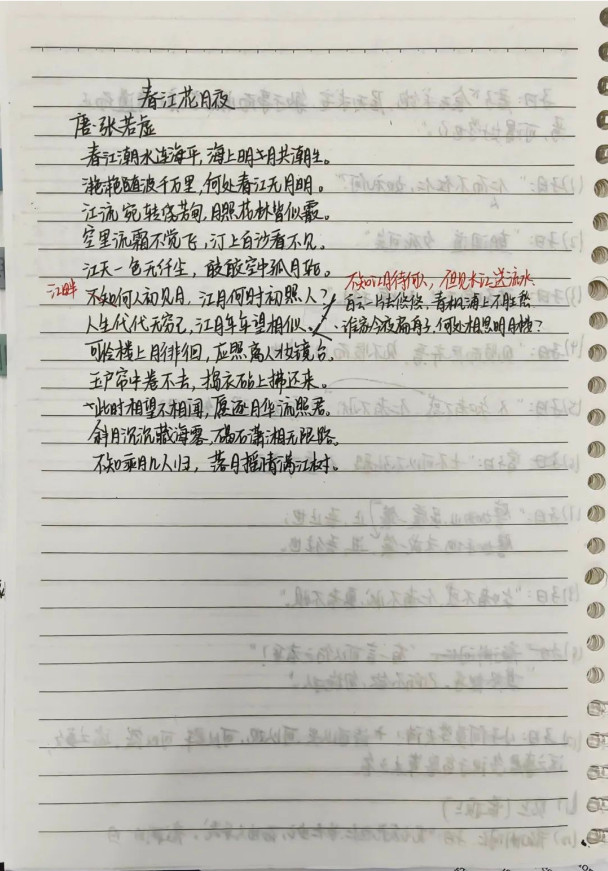 春江花月夜
唐·张若虚
春江潮水连海平，海上明月共潮生。
滟滟随波千万里，何处春江无月明。
江流宛转绕芳甸，月照花林皆似霰。
空里流霜不觉飞，汀上白沙看不见。
江天一色无纤尘，皎皎空中孤月轮。
江畔 不知何人初见月，江月何时初照人？
不知江月待何人，但见长江送流水
人生代代无穷已，江月年年望相似。
白云一片去悠悠，青枫浦上不胜愁
谁家今夜扁舟子，何处相思明月楼？
可怜楼上月徘徊，应照离人妆镜台。
玉户帘中卷不去，捣衣砧上拂还来。
此时相望不相闻，愿逐月华流照君。
斜月沉沉藏海雾，碣石潇湘无限路。
不知乘月几人归，落月摇情满江树。